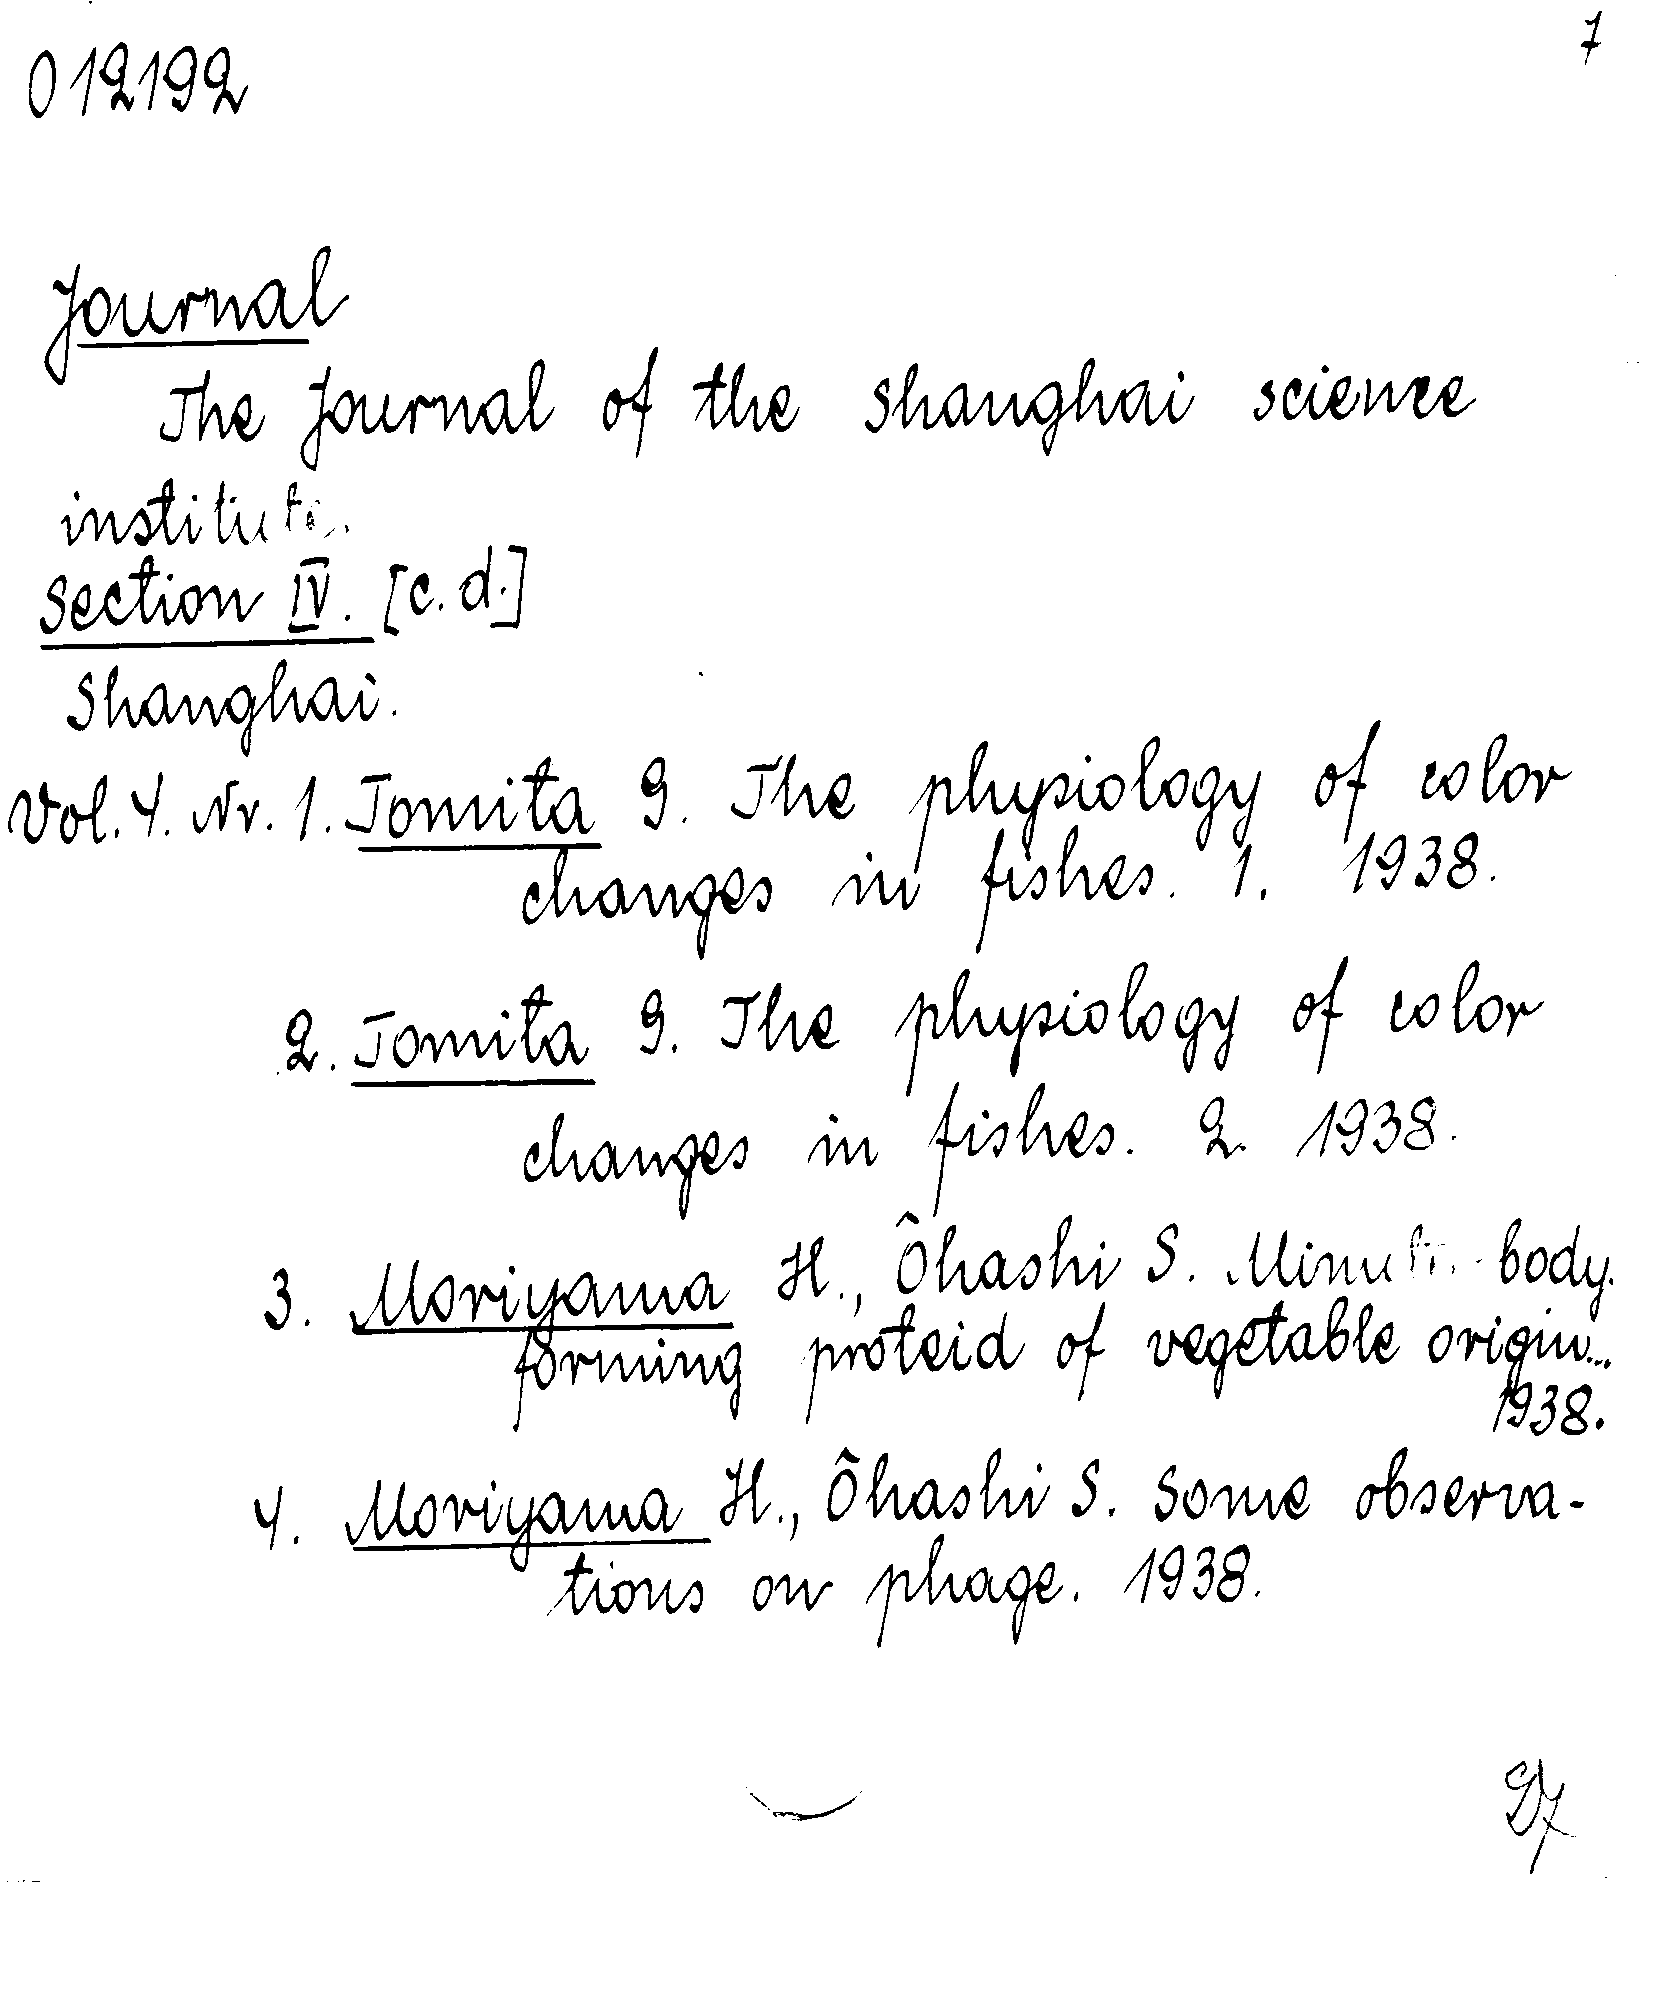 7
012192
Journal
The Journal of the Shanghai science
institute.
Section IV. [c.d.]
Shanghai.
Vol. 4. Nr. 1. Tomita G. The physiology of color
changes in fishes. 1. 1938.
2. Tomita G. The physiology of color
changes in fishes. 2. 1938.
3. Moriyama H., Ôhashi S. Minute body
forming proteid of vegetable origin...
1938.
4. Moriyama H., Ôhashi S. Some observa-
tions on phage. 1938.
27